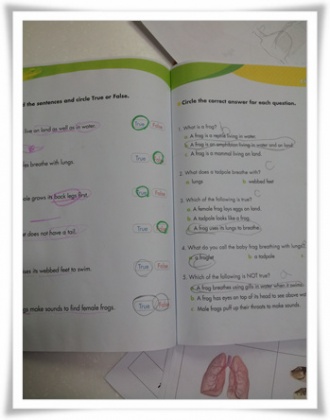 the sentences and circle True or False.
live on land as well as in water.
True False
breathe with lungs.
True
grows its back legs first.
True
does not have a tail.
True
uses its webbed feet to swim.
True False
make sounds to find female frogs.
True False
Circle the correct answer for each question.
1. What is a frog?
a. A frog is a reptile living in water.
b. A frog is an amphibian living in water and on land.
c. A frog is a mammal living on land.
2. What does a tadpole breathe with?
a lungs b webbed feet
3. Which of the following is true?
a. A female frog lays eggs on land.
b. A tadpole looks like a frog.
c. A frog uses its lungs to breathe.
4. What do you call the baby frog breathing with lungs?
a. a froglet b. a tadpole
5. Which of the following is NOT true?
a. A frog breathes using gills in water when it
b. A frog has eyes on top of its head to see above
c. Male frogs puff up their throats to make sounds.